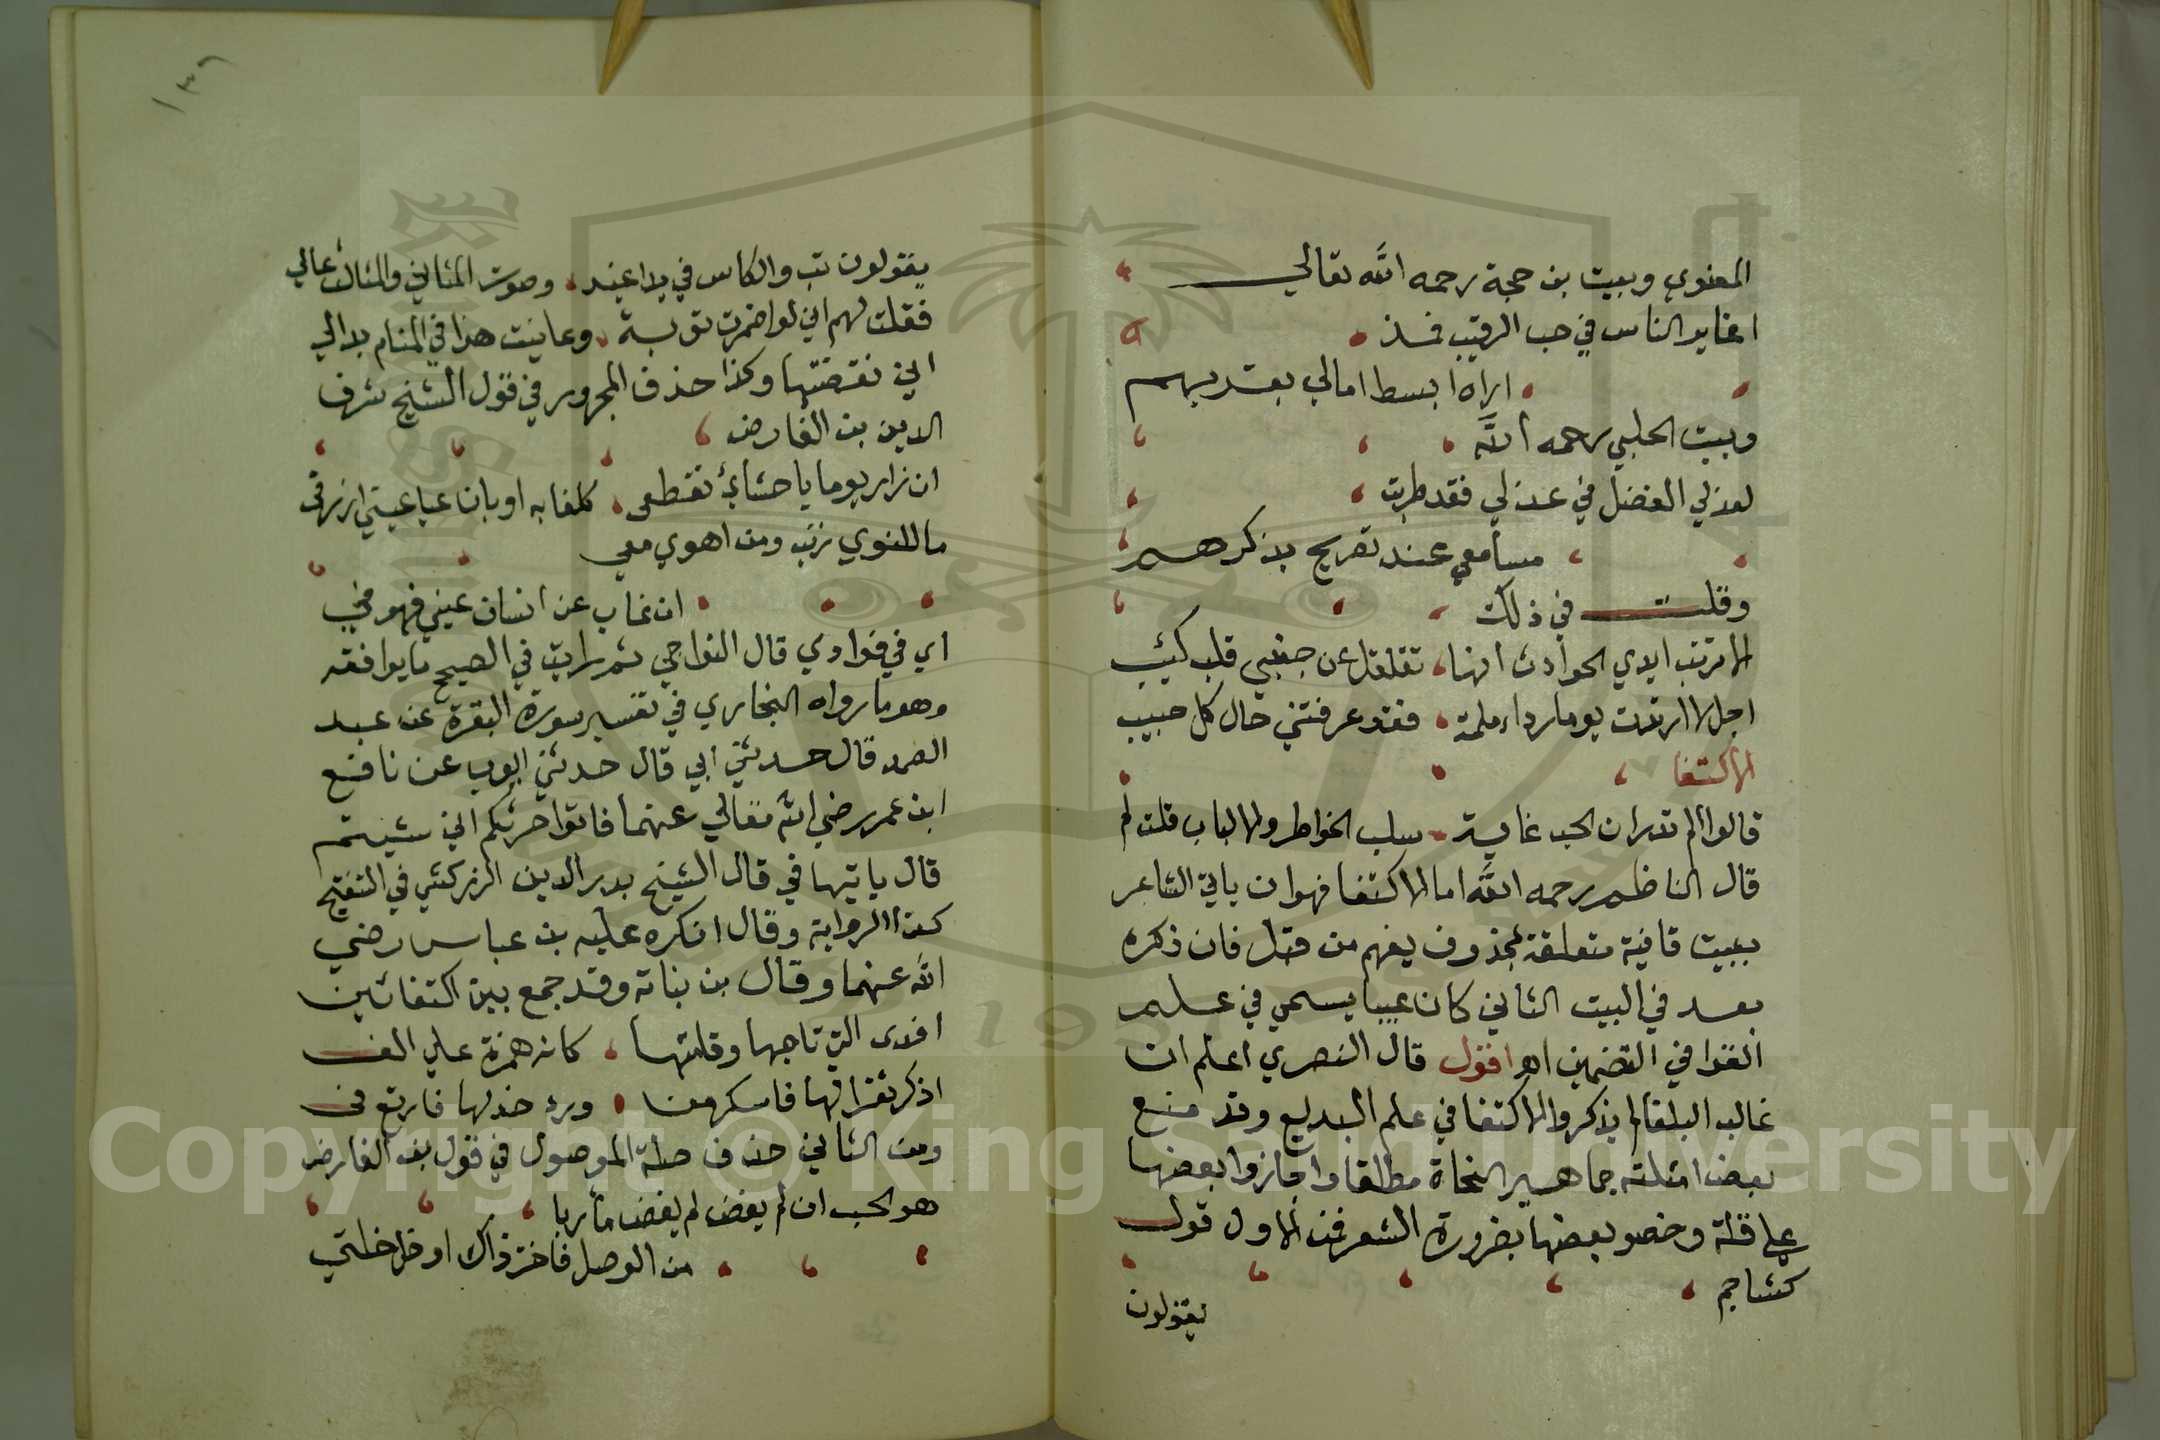 المعنوي وبيت بن حجة رحمه الله تعالي
اغاير الناس في حب الرقيب فمذ
اراه ابسط امالي بقربهم
وبيت الحلبي رحمه الله
لعذلي الفضل في عذلي فقد طربت
مسامعي عند تصريح بذكرهم
وقلت في ذلك
لا ترتب ايدي الحوادث انها تقلقل عن جنبي قلب كئيب
اجل لا ارتدت يوما رداء ملمة فقد عرفتني حال كل حبيب
الاكتفا
قالوا الم تدر ان الحب غايته سلب الخواطر والالباب قلت لم
قال الناظم رحمه الله اما الاكتفا فهو ان ياتي الشاعر
ببيت قافية متعلقة بمحذوف يفهم من قبل فان ذكره
بعد في البيت الثاني كان عيبا يسمي في علم
القوافي التضمين اه اقول قال النصري اعلم ان
غالب البلغا لم يذكروا الاكتفا في علم البديع وقد منع
بعض امثلته جماهير النحاة مطلقا واجازوا بعضها
علي قلة وخصو بعضها بضرورة الشعر فمن الاول قول
كشاجم
يقولون
١٣٦
يقولون تب والكاس في يد اغيد وصوت المثاني والمثالث عالي
فقلت لهم اني لو اضمرت توبة وعاينت هذا في المنام بدا لي
اني نقضتها وكذا حذف المجرور في قول الشيخ شرف
الدين بن الفارض
ان زار يوما يا حشاي تقطعي كلفا به او بان عيا عيني ارزقي
ما للنوي زنب ومن اهوي معي
ان غاب عن انسان عيني فهو في
اي في فوادي قال النواجي ثم رايت في الصحيح ما يوافقه
وهو ما رواه البخاري في تفسير سورة البقرة عن عبد
الصمد قال حدثني ابي قال حدثني ايوب عن نافع
ابن عمر رضي الله تعالي عنهما فاتوا حرثكم اني شيتم
قال ياتيها في قال الشيخ بدر الدين الزركشي في التنقيح
كذا الرواية وقال انكره عليه بن عباس رضي
الله عنهما وقال بن نباتة وقد جمع بين اكتفائين
افدي التي تاجها وقامتها كانه همزة علي الف
اذكر ثغرا لها فاسكر من ورد خد لها فارتع في
ومن الثاني حذف صلة الموصول في قول بن الفارض
هو الحب ان لم يقض لم يقض ماربا
من الوصل فاختر ذاك او خل خلتي
Copyright © King Saud University
1957